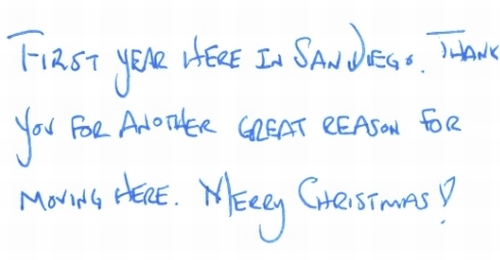 First year here in San Diego. Thank
you for another great reason for
moving here. Merry Christmas!